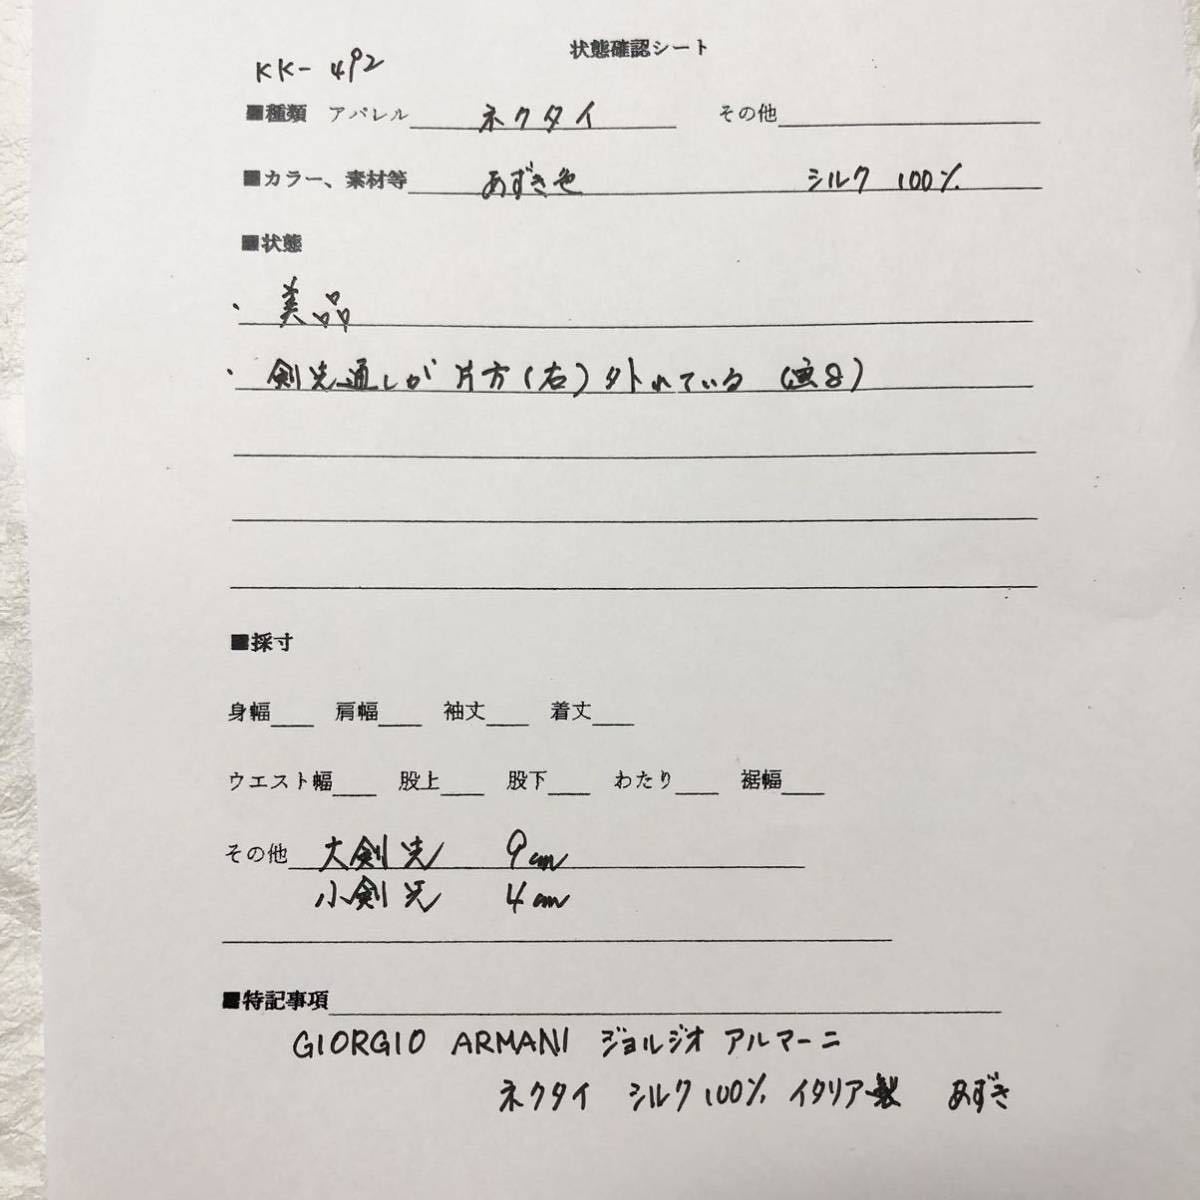 状態確認シート
KK-492
■種類 アパレル ネクタイ その他
■カラー、素材等 あずき色 シルク 100%
■状態
・美品
・剣先通しが片方(右)外れている(画8)
■採寸
身幅 肩幅 袖丈 着丈
ウエスト幅 股上 股下 わたり 裾幅
その他 大剣先 9cm
小剣先 4cm
■特記事項
GIORGIO ARMANI ジョルジオ アルマーニ
ネクタイ シルク100% イタリア製 あずき